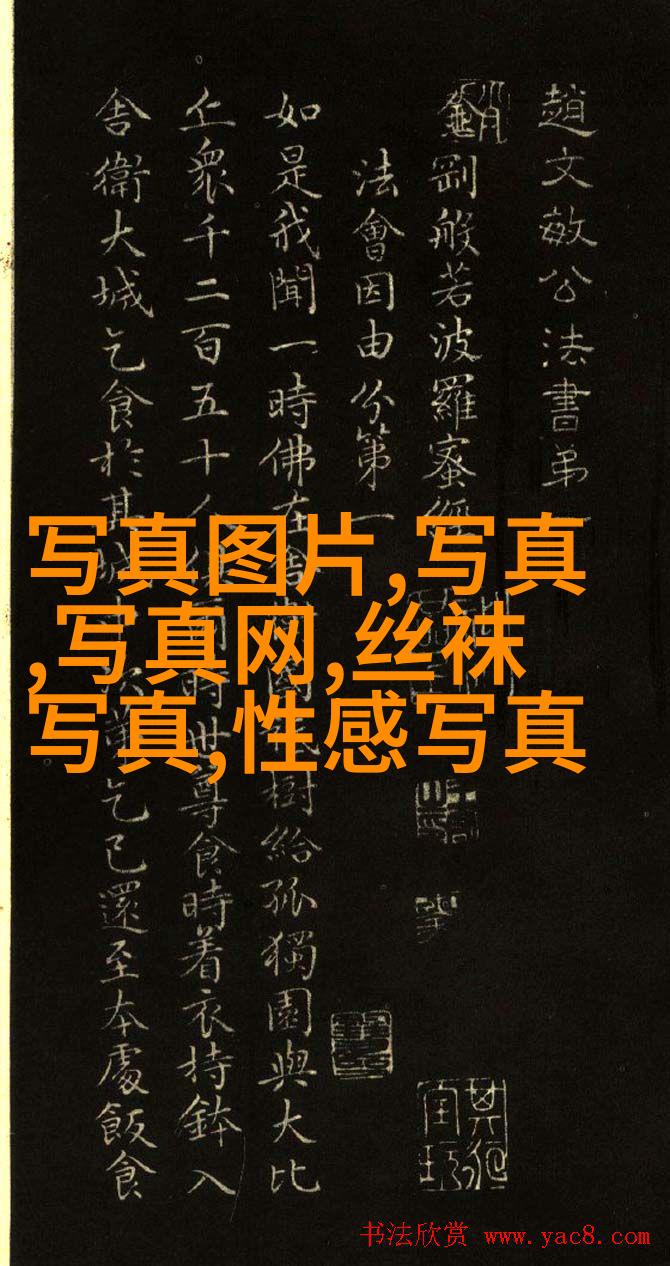 趙文敏公法書弟
金剛般若波羅蜜經
法會因由分第一
如是我聞一時佛在樹給孤獨園與大比
丘眾千二百五十人爾時世尊食時着衣持鉢入
舍衛大城乞食於其城次第乞已還至本處飯食
写真图片,写真
,写真网,丝袜
写真,性感写真
书法欣赏 www.yac8.com